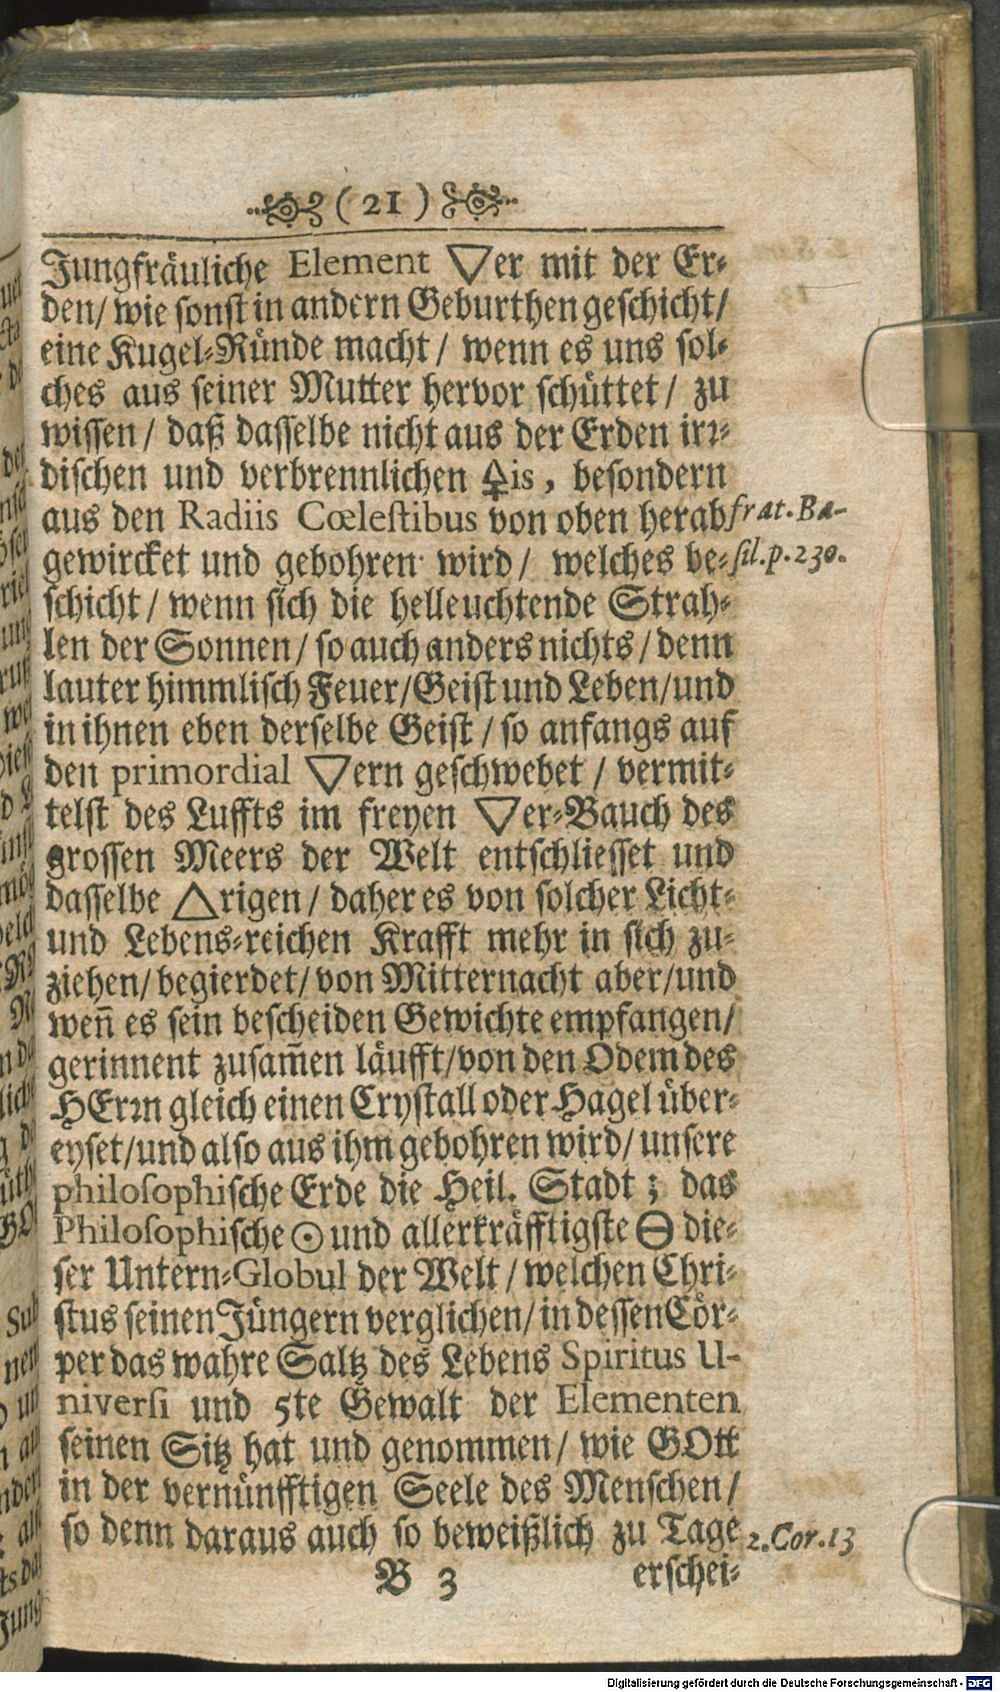 ( 21 )
Jungfräuliche Element 🜄er mit der Er-
den/ wie sonst in andern Geburthen geschicht/
eine Kugel-Ründe macht / wenn es uns sol-
ches aus seiner Mutter hervor schüttet / zu
wissen / daß dasselbe nicht aus der Erden irꝛ-
dischen und verbrennlichen 🜍is, besondern
aus den Radiis Cœlestibus von oben herab frat. Ba-
gewircket und gebohren wird / welches be- sil. p. 230.
schicht / wenn sich die helleuchtende Strah-
len der Sonnen / so auch anders nichts / denn
lauter himmlisch Feuer/Geist und Leben/und
in ihnen eben derselbe Geist / so anfangs auf
den primordial 🜄ern geschwebet / vermit-
telst des Luffts im freyen 🜄er-Bauch des
grossen Meers der Welt entschliesset und
dasselbe 🜂rigen / daher es von solcher Licht-
und Lebens-reichen Krafft mehr in sich zu-
ziehen/ begierdet/ von Mitternacht aber/und
weñ es sein bescheiden Gewichte empfangen/
gerinnent zusam̃en läufft/von den Odem des
HErꝛn gleich einen Crystall oder Hagel über-
eyset/und also aus ihm gebohren wird/ unsere
philosophische Erde die Heil. Stadt; das
Philosophische ☉ und allerkräfftigste 🜔 die-
ser Untern-Globul der Welt / welchen Chri-
stus seinen Jüngern verglichen/ in dessen Cör-
per das wahre Saltz des Lebens Spiritus U-
niversi und 5te Gewalt der Elementen
seinen Sitz hat und genommen/ wie GOtt
in der vernünfftigen Seele des Menschen /
so denn daraus auch so beweißlich zu Tage 2. Cor. 13
B 3 erschei-
Digitalisierung gefördert durch die Deutsche Forschungsgemeinschaft - DFG